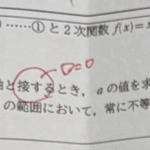 ) ……① と 2 次関数 f(x) =
D=0
と接するとき, a の値を求
の範囲において, 常に不等